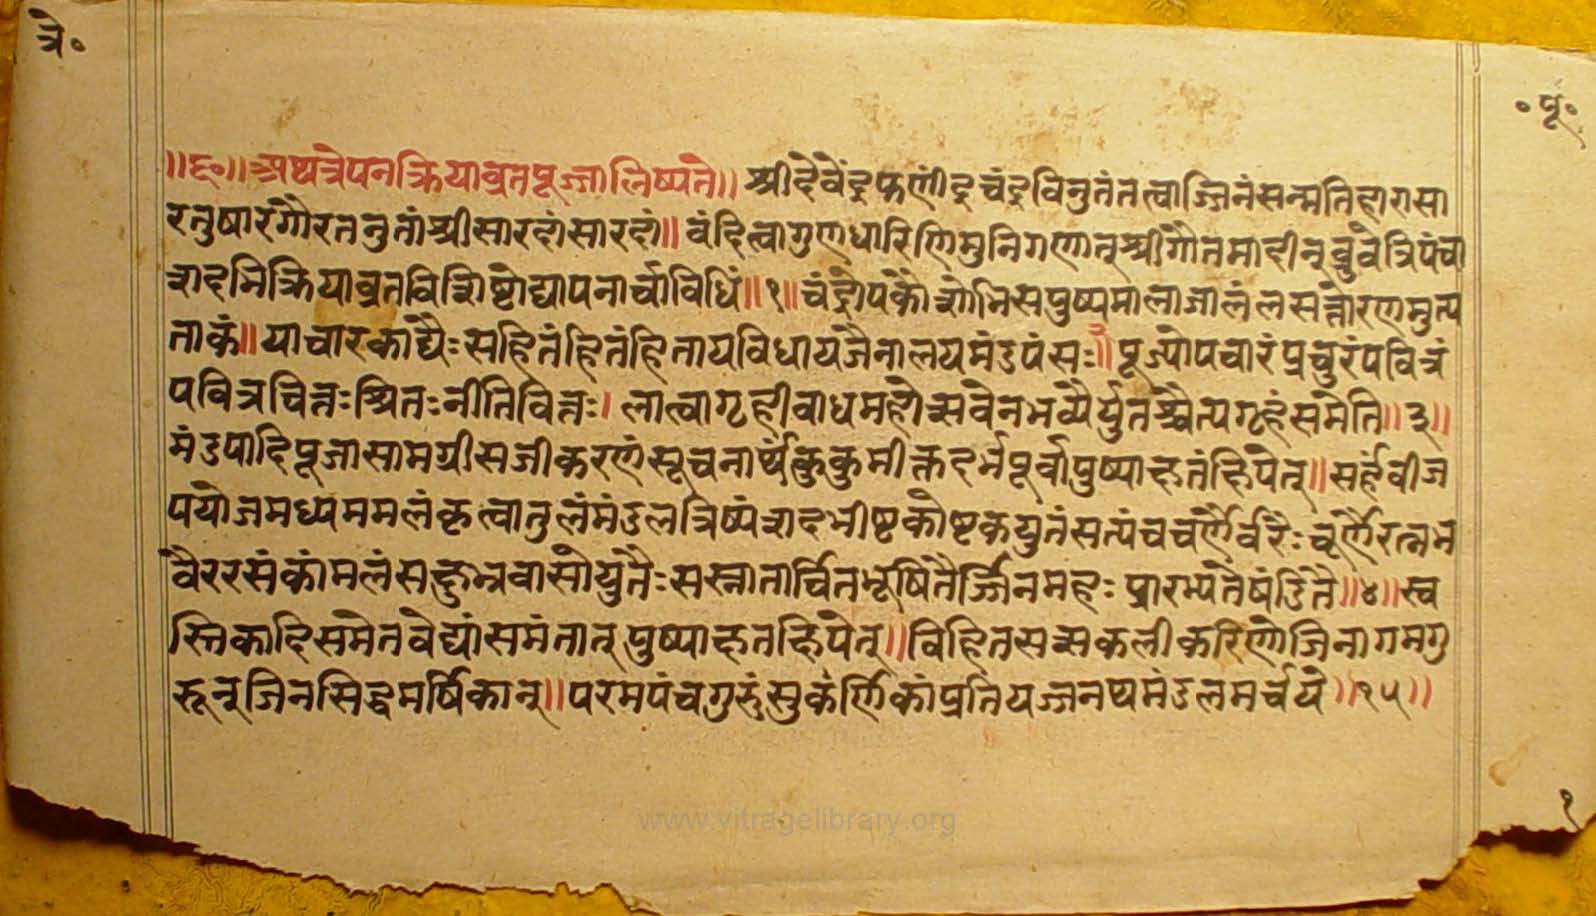 त्रे॰
॰पू॰
॥६०॥अथत्रेपनक्रियाव्रतपूज्जालिष्यते॥ श्रीदेवेंद्रफणींद्रचंद्रविनुतंतत्वाज्जिनंसन्मतिहारासा
रतुषारगौरतनुतांश्रीसारदांसारदां॥ वंदित्वागुणधारिणिमुनिगणान्श्रीगौतमादीन्ब्रुवेत्रिपंचा
शदमिक्रियाव्रतविशिष्टोद्यापनार्चाविधिं॥१॥चंद्रोपकैशोभिसपुष्पमालाजालंलसत्तोरणमुत्प
ताकं॥याचारकाद्यैःसहितंहितंहितायविधायजैनालयमंडपंसः॥ पूज्योपचारंप्रचुरंपवित्रं
पवित्रचित्तःश्रितःनीतिवित्तः। लात्वागृहीवाधमहोत्सवेनभव्यैर्युतश्चैत्यगृहंसमेति॥३॥
मंडपादिपूजासामग्रीसजीकरणंसूचनार्थंकुकुमाक्तदर्भपूर्वापुष्पाक्षतंक्षिपेत्॥सर्हंबीज
पयोजमध्यममलंकृत्वातुलंमंडलत्रिष्पंशदभीष्टकोष्टकयुतंसत्पंचवर्णैर्वरैः चूर्णैरत्नभ
वैररसंकांमलंसद्कुम्नवासोयुतैःसस्नातार्चितभूषितैर्ज्जिनमहः प्रारभ्यतेषंडितै॥४॥स्व
स्तिकादिसमेतवेद्यांसमंतात् पुष्पाक्षतक्षिपेत्॥विहितसत्सकलीकरिणोजिनागमगु
रून्जिनसिद्धमर्षिकान्॥परमपंचगुरुंसुकर्णिकांप्रतियज्जनथमंडलमर्चये॥१५॥
१
www.vitragelibrary.org